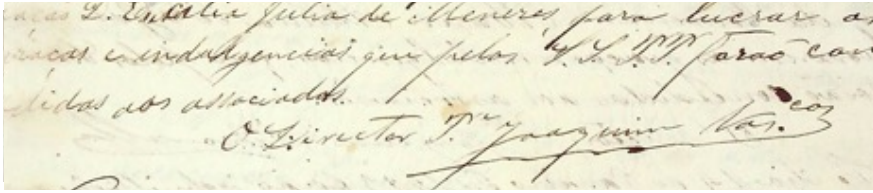 D. Eulalia Julia de Meneres para lucrar as
graças e indulgencias que pelos S.S. P.P. foraõ con
didas aos associados.
O Director P.e Joaquim Vas.cos